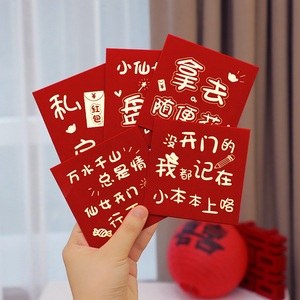 私
红包
小仙
岳
拿去
随便花
万水千山
总是情
仙女开门
行
没开门的
我都记在
小本本上咯